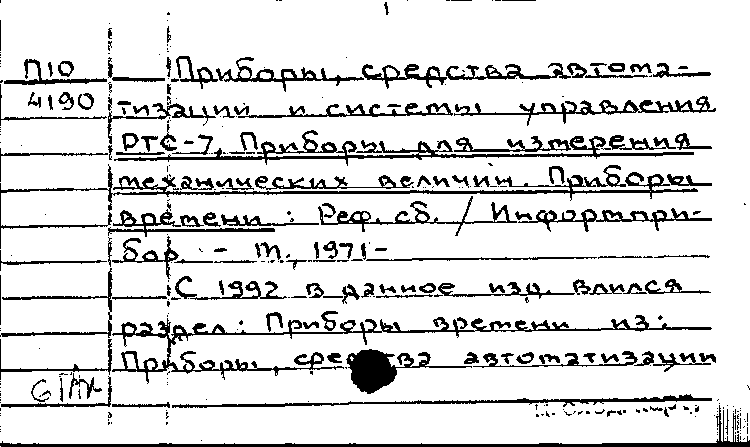 П10
4190
Приборы, средства автома-
тизации и системы управления
РТС-7, Приборы для измерения
механических величин. Приборы
времени : Реф. сб. / Информпри-
бор. - М., 1971-
С 1992 в данное изд. влился
раздел: Приборы времени из:
Приборы, средства автоматизации